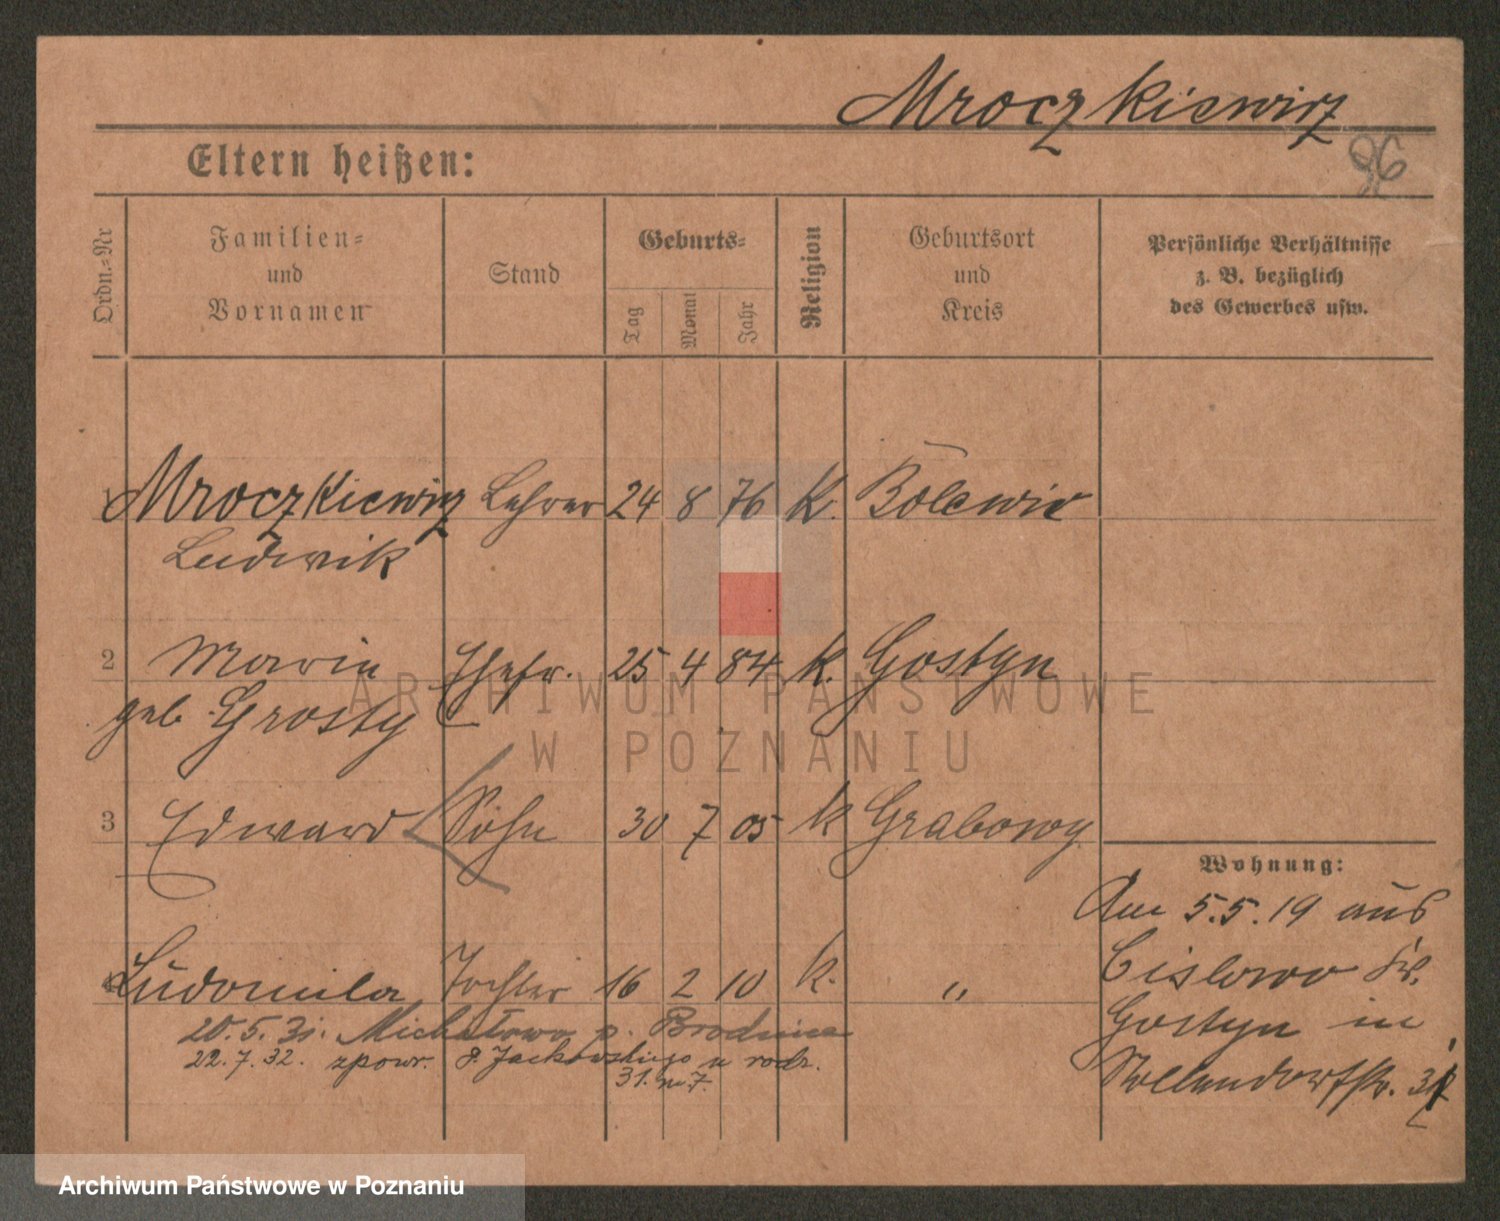 Mroczkiewicz
96
Eltern heißen:
Ordn.-Nr
Familien-
und
Vornamen
Stand
Geburts-
Tag
Monat
Jahr
Religion
Geburtsort
und
Kreis
Persönliche Verhältnisse
z. B. bezüglich
des Gewerbes usw.
1 Mroczkiewicz Lehrer 24 8 76 K. Bolewic
Ludwik
2 Maria Ehefr. 25 4 84 k. Gostyn
geb Grosty
3 Edward Sohn 30 7 05 k Grabowy
Wohnung:
Am 5.5.19 aus
4 Ludomila Tochter 16 2 10 k. "
Cislowo Kr.
Gostyn in
20.5.31. Michałowo p. Brodnica
22.7.32. zpowr. P. Jackowskiego u rodz.
31. m 7.
ARCHIWUM PAŃSTWOWE
W POZNANIU
Archiwum Państwowe w Poznaniu